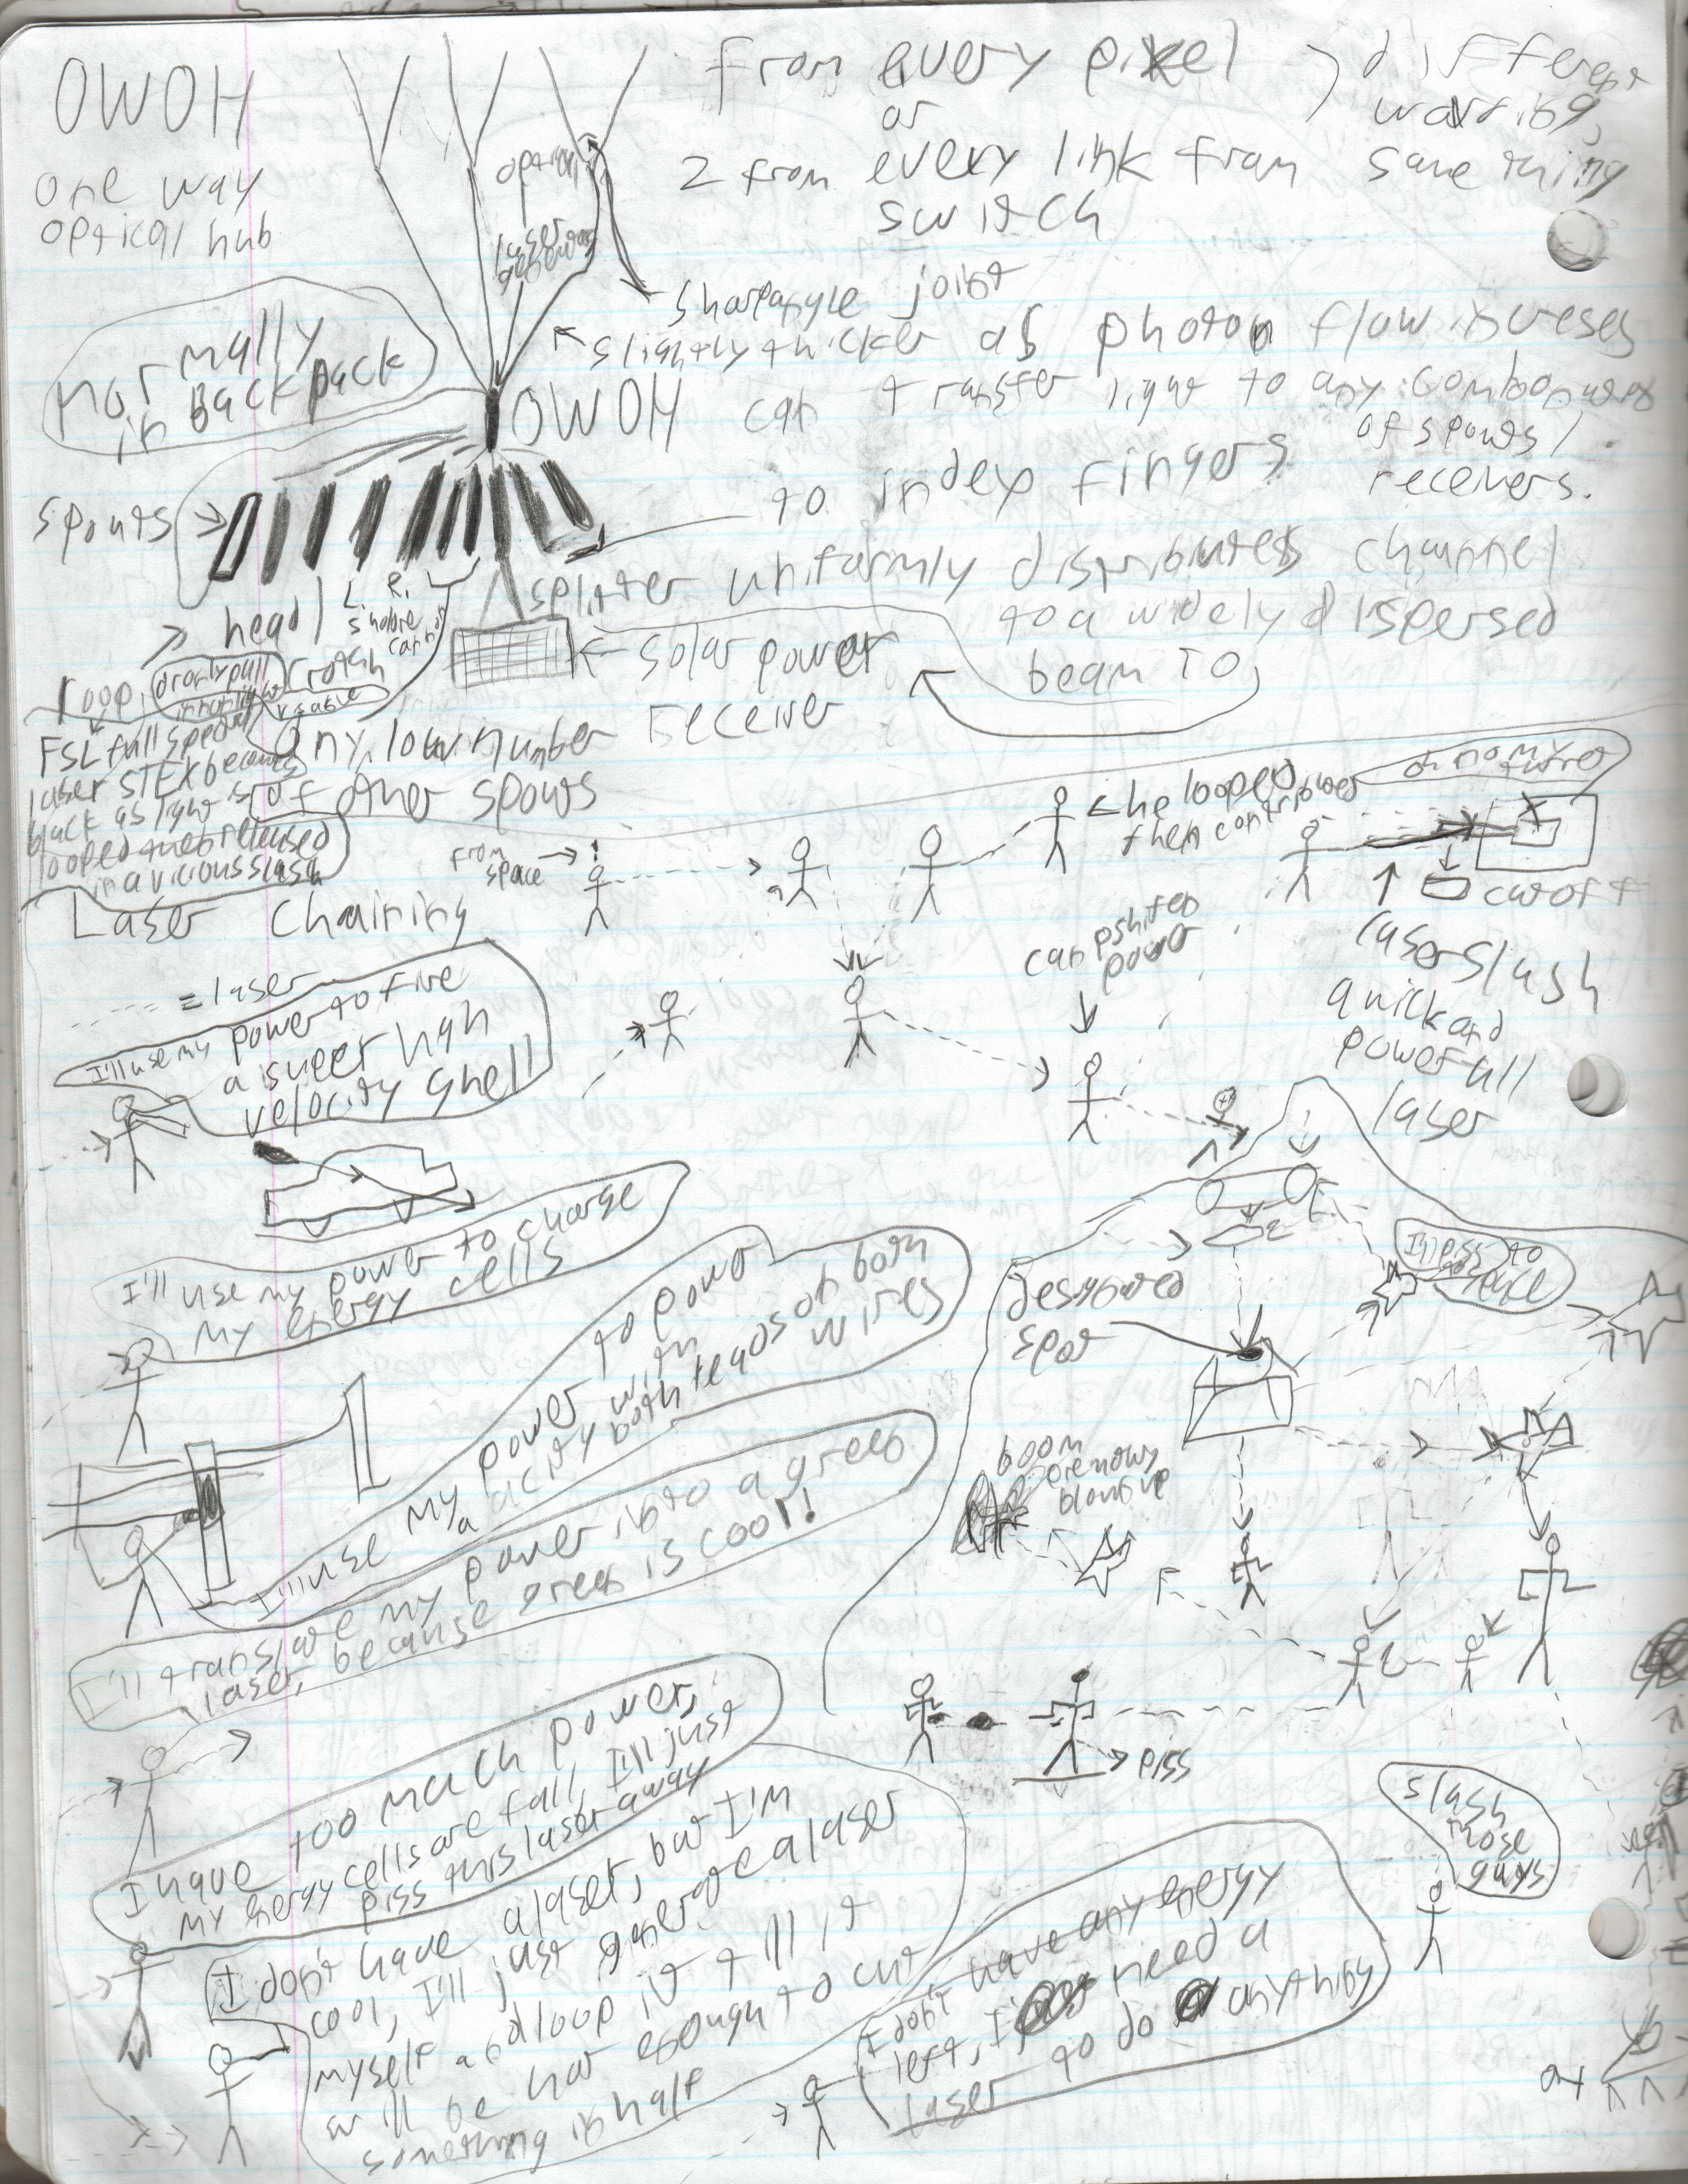 OWOH
one way
optical hub
from every pixel
or
2 from every link from
switch
different
same thing
option
laser
sharpangle joint
slightly thicker as photon flow
normally
in Backpack
OWOH can transfer light to any
of spouts/
receivers.
spouts
to index fingers
splitter uniformly distributes channel
to a widely dispersed
beam TO
solar power
receiver
head
L. R.
loop,
FSL full speed
laser STEX becomes
black as light is
looped then released
in a vicious slash
any low number
of other spouts
from
space
he looped
then contributed
cutoff
Laser Chaining
---- = laser
laser slash
quick and
powerfull
laser
power
I'll use my power to fire
a super high
velocity shell
I'll use my power to charge
my energy cells
I'll use my power to power
a city with
both hands on both
wires
I'll translate my power into a green
laser, because green is cool!
designated
spot
I'll piss to
boom
blown up
piss
I have too much power,
my energy cells are full, I'll just
piss this laser away
slash
those
guys
I don't have a laser, but I'm
cool, I'll just generate a laser
myself and loop it till it
will be hot enough to cut
something in half
I don't have any energy
left, I need a
laser to do anything